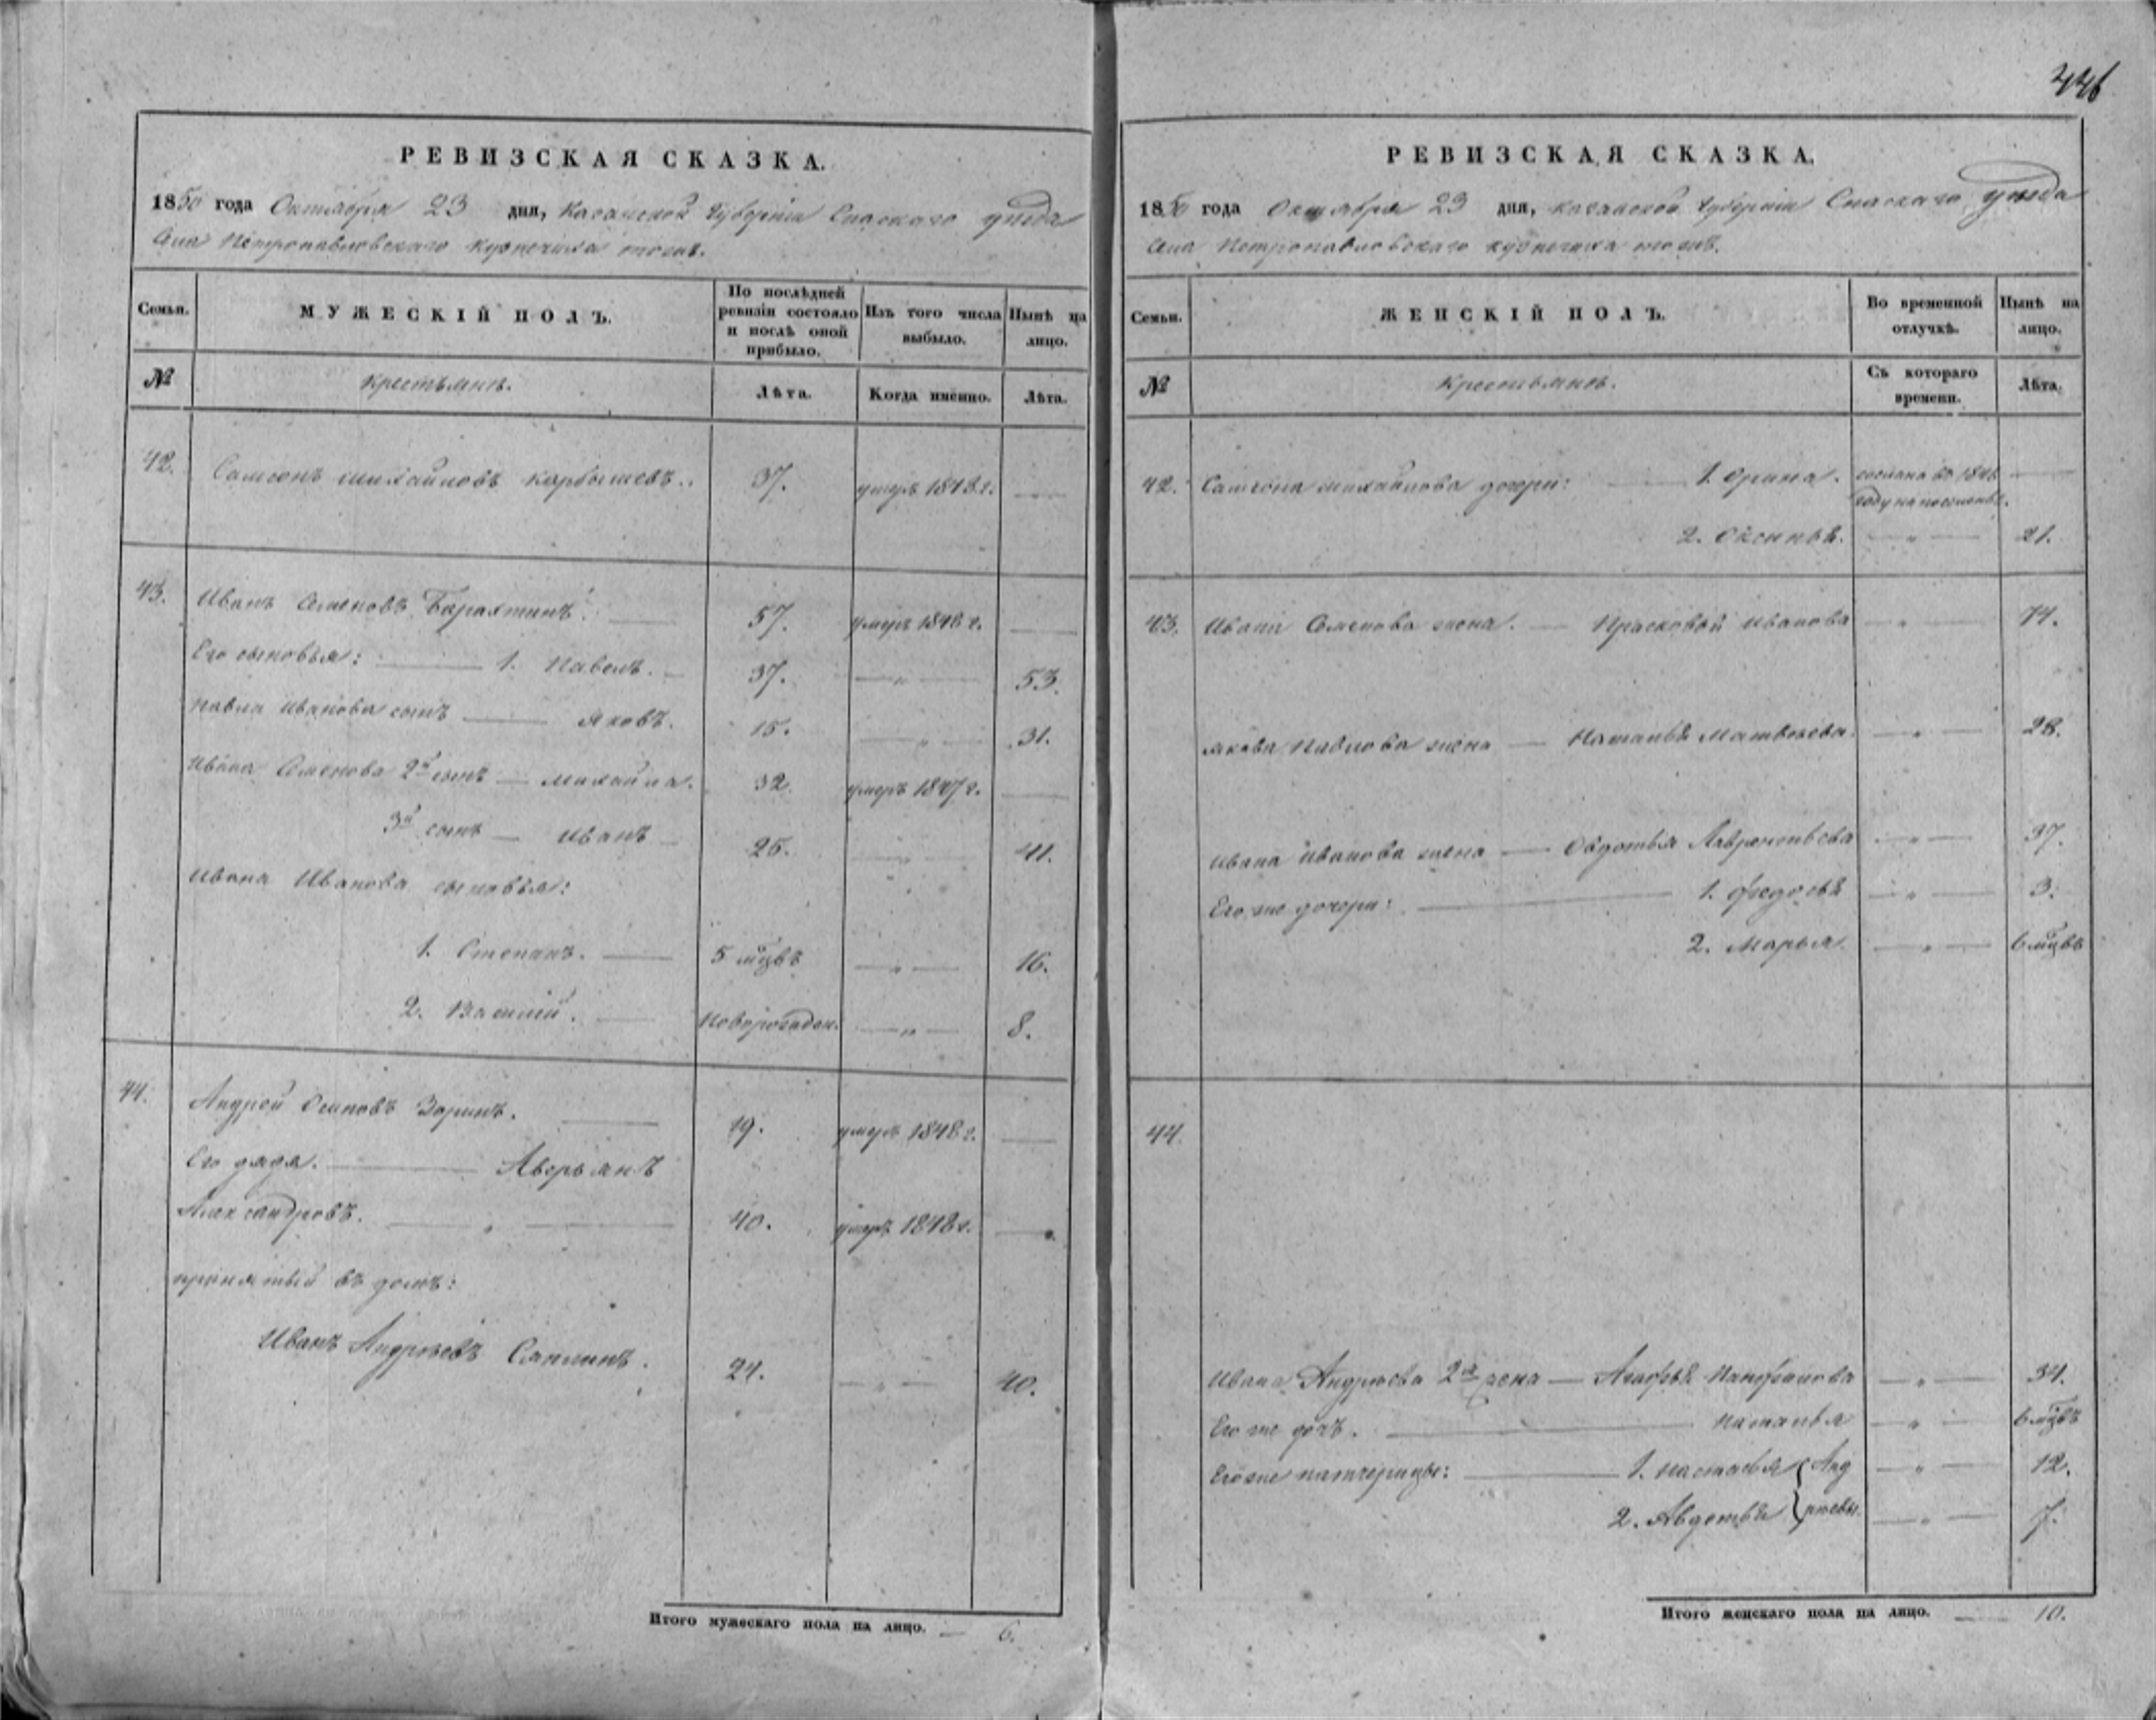 446
РЕВИЗСКАЯ СКАЗКА.
1850 года Октября 23 дня, Казанской Губернiи Спаскаго уѣзда
Села Петропавловскаго Кузнечиха тожъ.
Семьи. МУЖЕСКІЙ ПОЛЪ. По послѣдней ревизіи состояло и послѣ оной прибыло. Изъ того числа выбыло. Нынѣ на лицо.
№ Крестьянъ. Лѣта. Когда именно. Лѣта.
42. Самсонъ Михайловъ Карбышевъ. 37. умеръ 1843 г.
43. Иванъ Семеновъ Барахтинъ. 57. умеръ 1848 г.
Его сыновья: 1. Павелъ. 37. — " — 53.
Павла Иванова сынъ Яковъ. 15. — " — 31.
Ивана Семенова 2й сынъ — Михайла. 32. умеръ 1847 г.
3й сынъ — Иванъ 25. — " — 41.
Ивана Иванова сыновья:
1. Степанъ. 5 мцвъ — " — 16.
2. Василий. Новорожден. — " — 8.
44. Андрей Осиповъ Зоринъ. 19. умеръ 1848 г.
Его дядя. Аверьянъ
Александровъ. 40. умеръ 1848 г.
принятый въ домъ:
Иванъ Андреевъ Саплинъ. 24. — " — 40.
Итого мужескаго пола на лицо. — 6.
РЕВИЗСКАЯ СКАЗКА.
1850 года Октября 23 дня, Казанской Губернiи Спаскаго уѣзда
Села Петропавловскаго Кузнечиха тожъ.
Семьи. ЖЕНСКІЙ ПОЛЪ. Во временной отлучкѣ. Нынѣ на лицо.
№ Крестьянъ. Съ котораго времени. Лѣта.
42. Самсона Михайлова дочери: 1. Орина. сослана въ 1846
году на поселенье.
2. Оксинья. — " — 21.
43. Ивана Семенова жена. — Прасковья Иванова — " — 74.
Якова Павлова жена — Наталья Матвеева. — " — 28.
Ивана Иванова жена — Овдотья Лаврентьева — " — 37.
Его же дочери: 1. Федосья — " — 3.
2. Марья — " — 6 мцвъ
44.
Ивана Андреева 2я жена — Агафья Панфилова — " — 34.
Его же дочь. Наталья — " — 6 мцвъ
Его же патчерицы: 1. Настасья { Анд — " — 12.
2. Авдотья } реевы. — " — 7.
Итого женскаго пола на лицо. — 10.